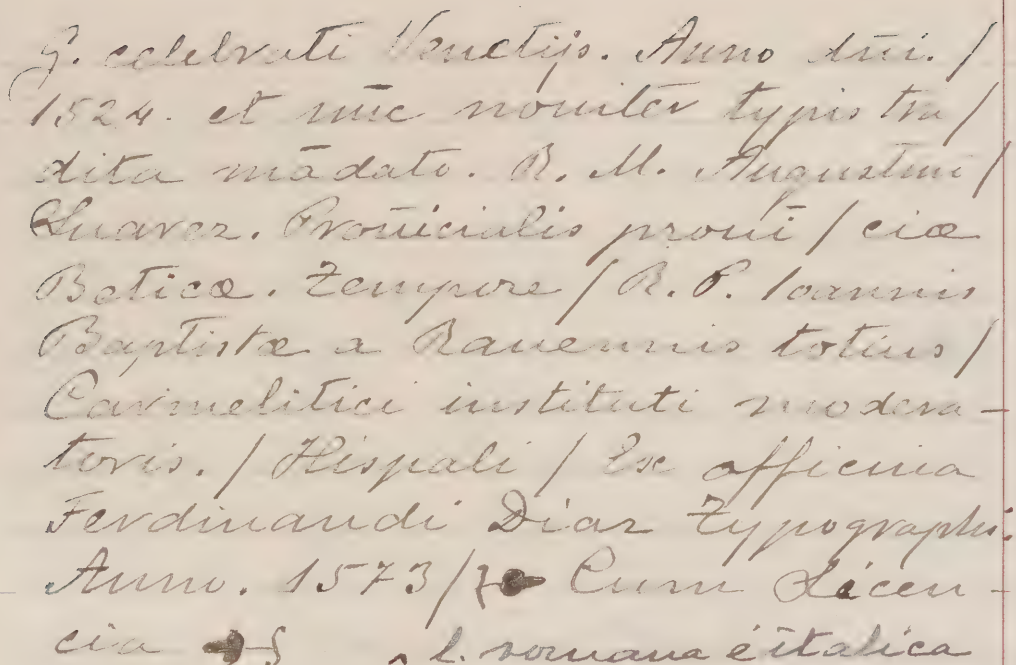 G. celebrati Venetijs. Anno dñi. /
1524. et nũc nouiter typis tra /
dita mãdato. R. M. Augustini /
Suarez. Prouĩcialis prouĩ / ciæ
Beticæ. Tempore / R. P. Ioannis
Baptistæ a Rauennis totius /
Carmelitici instituti modera-
toris. / Hispali / Ex officina
Ferdinandi Diaz Typographi.
Anno. 1573 / Cum Licen-
cia l. romana é italica